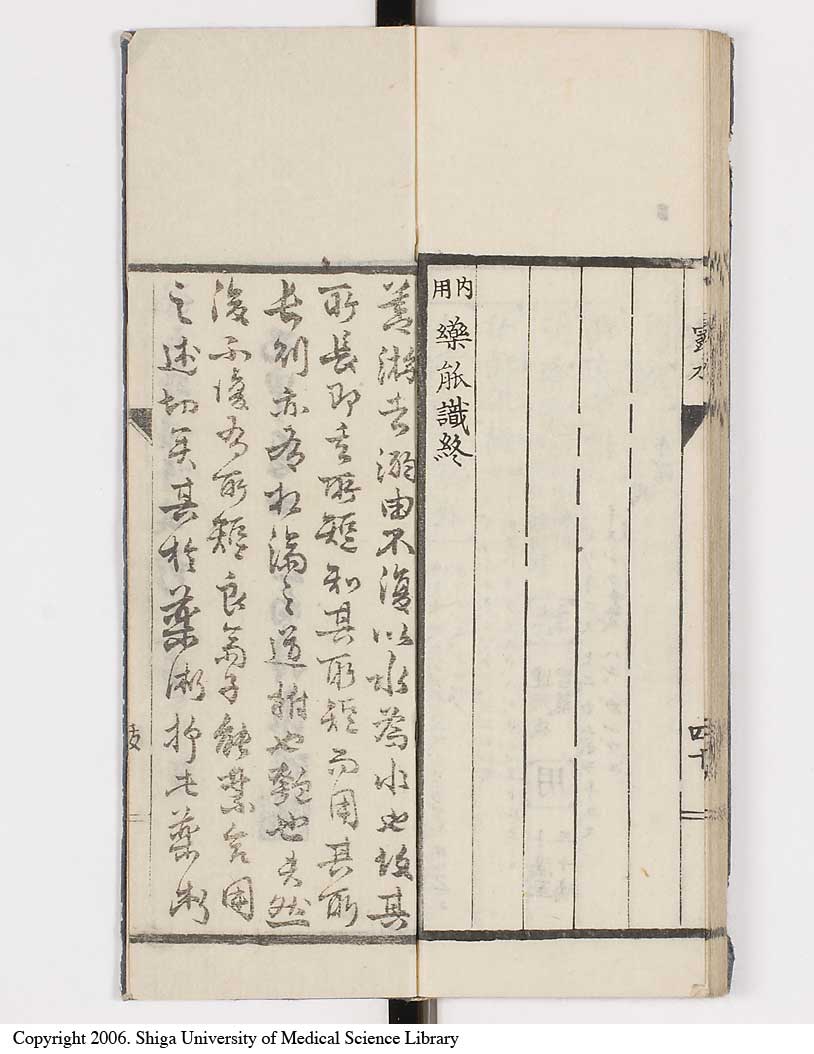 内用 藥能識終
善游者溺由不復以水為水也故其
所長即其所短知其所短而用其所
長則亦為相濟之道樹也瓠也夫然
後不復為所短良斎子能業合用
之述切矣其於藥術抑亦藥術
四十
跋
Copyright 2006. Shiga University of Medical Science Library